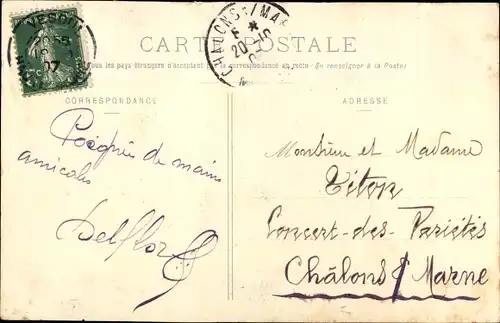 CARTE POSTALE
Tous les pays étrangers n'acceptent pas la correspondance au recto - Se renseigner à la Poste
CORRESPONDANCE
Poignée de mains
amicales
Delflor
ADRESSE
Monsieur et Madame
Titon
Concert-des-Variétés
Châlons s/ Marne
VESOUL
07
CHALONS S/ MARNE
20